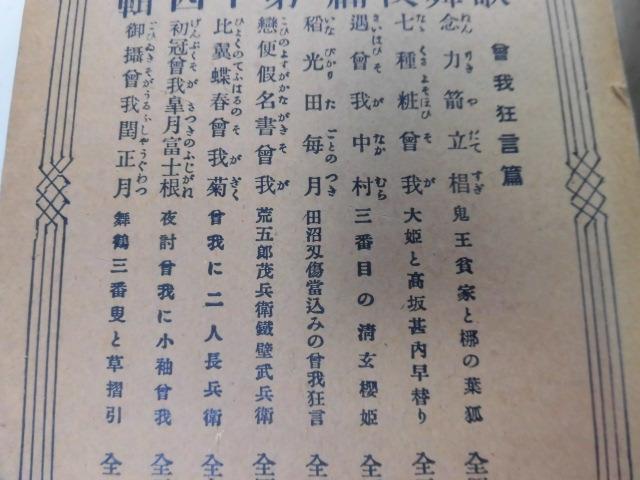 曾我狂言篇
念力箭立椙 鬼王貧家と梛の葉狐 全
七種粧曾我 大姫と高坂甚内早替り 全
遇曾我中村 三番目の淸玄櫻姫 全
稻光田每月 田沼刄傷當込みの曾我狂言 全
戀便假名書曾我 荒五郎茂兵衞鐵壁武兵衞 全
比翼蝶春曾我菊 曾我に二人長兵衞 全
初冠曾我皐月富士根 夜討曾我に小袖曾我 全
御攝曾我閏正月 舞鶴三番叟と草摺引 全